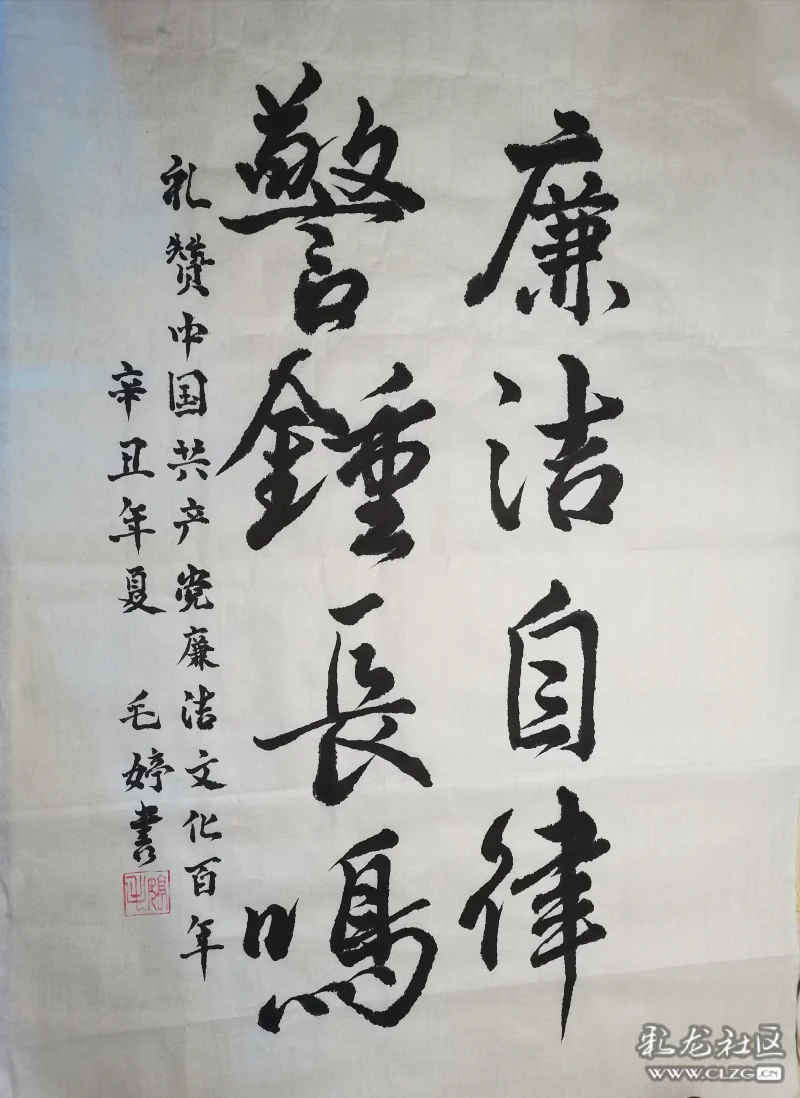 廉洁自律
警鍾長鳴
礼赞中国共产党廉洁文化百年
辛丑年夏 毛婷書
彩龙社区
WWW.CLZG.CN